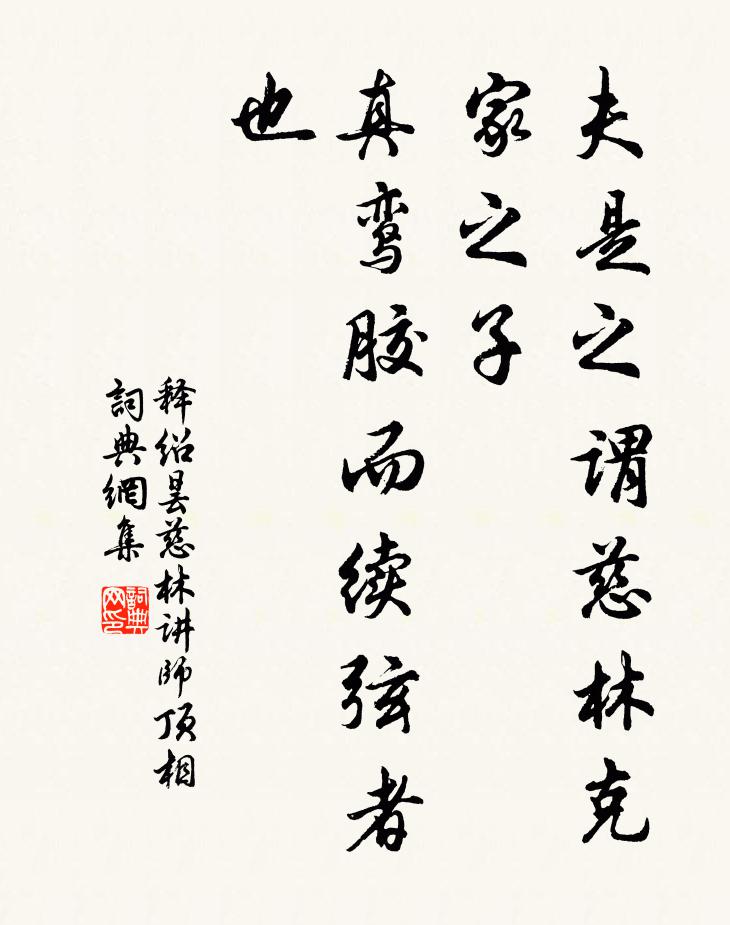 夫是之谓慈林克
家之子
真鸾胶而续弦者
也
释绍昙慈林讲师顶相
詞典網集
詞典
网印